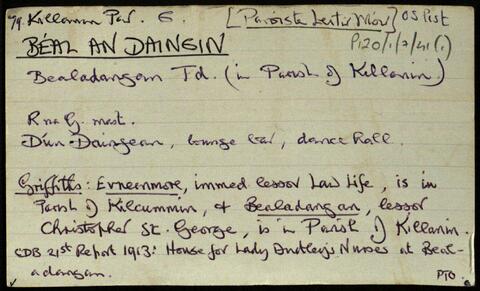 79. Killannin Par. G. [Paróiste Leitir Móir] OS Pist
BÉAL AN DAINGIN P120/1/2/41(1)
Bealadangan Td. (in Parish of Killanin)
R na G. mast.
Dún Daingean, lounge bar, dance hall.
Griffiths: Evneenmore, immed. lessor Law Life, is in
Parish of Kilcummin, & Bealadangan, lessor
Christopher St. George, is in Parish of Killanin.
CDB 21st Report 1913: House for Lady Dudley's Nurses at Beal-
adangan. PTO.